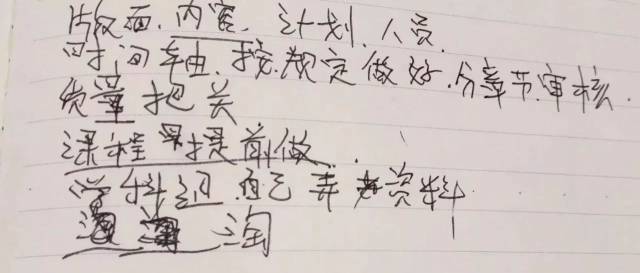 版面、内容、计划、人员、
时间轴、按规定做好、分章节审核、
党章把关
课程提前做、
学科组自己弄资料
淘